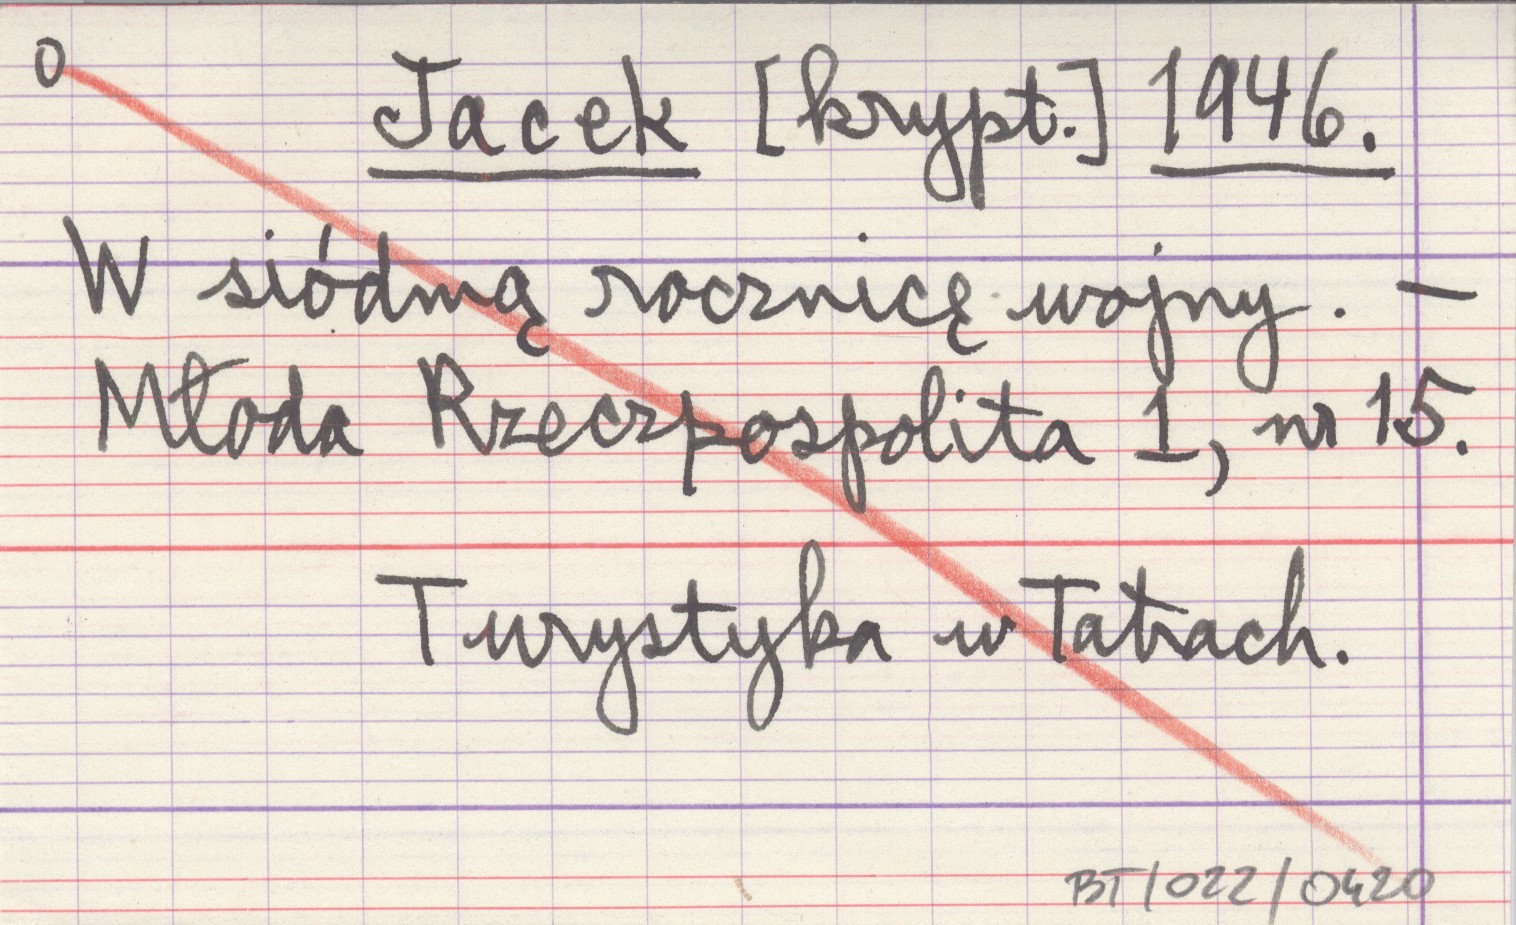 0
Jacek [krypt.] 1946.
W siódmą rocznicę wojny. —
Młoda Rzeczpospolita 1, nr 15.
Turystyka w Tatrach.
BT/022/0420